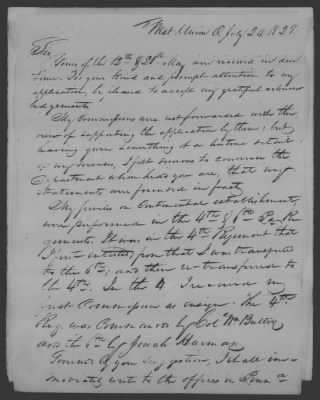 West Union O July 24 1827
Sir
Yours of the 12th & 28th May are received in due
time. For your kind and prompt attention to my
application, be pleased to accept my grateful acknow
ledgements
My Commissions are not forwarded with the
view of supporting the application by them: but
having given something of a historic detail
of my services, I felt desirous to convince the
Department whose head you are, that my
statements are founded in fact,
My services on Continental establishment,
were performed in the 4th & 6th Pa. Re
giments. It was in the 4th Regiment that
I first entered, from that I was transferred
to the 6th, and then re-transferred to
the 4th. In the 4 I received my
first Commission as ensign. The 4th
Reg. was Commanded by Col Wm Butler
and the 6th by Josiah Harmar
Pursuant to your suggestion, I shall im-
mediately write to the offices in Penna